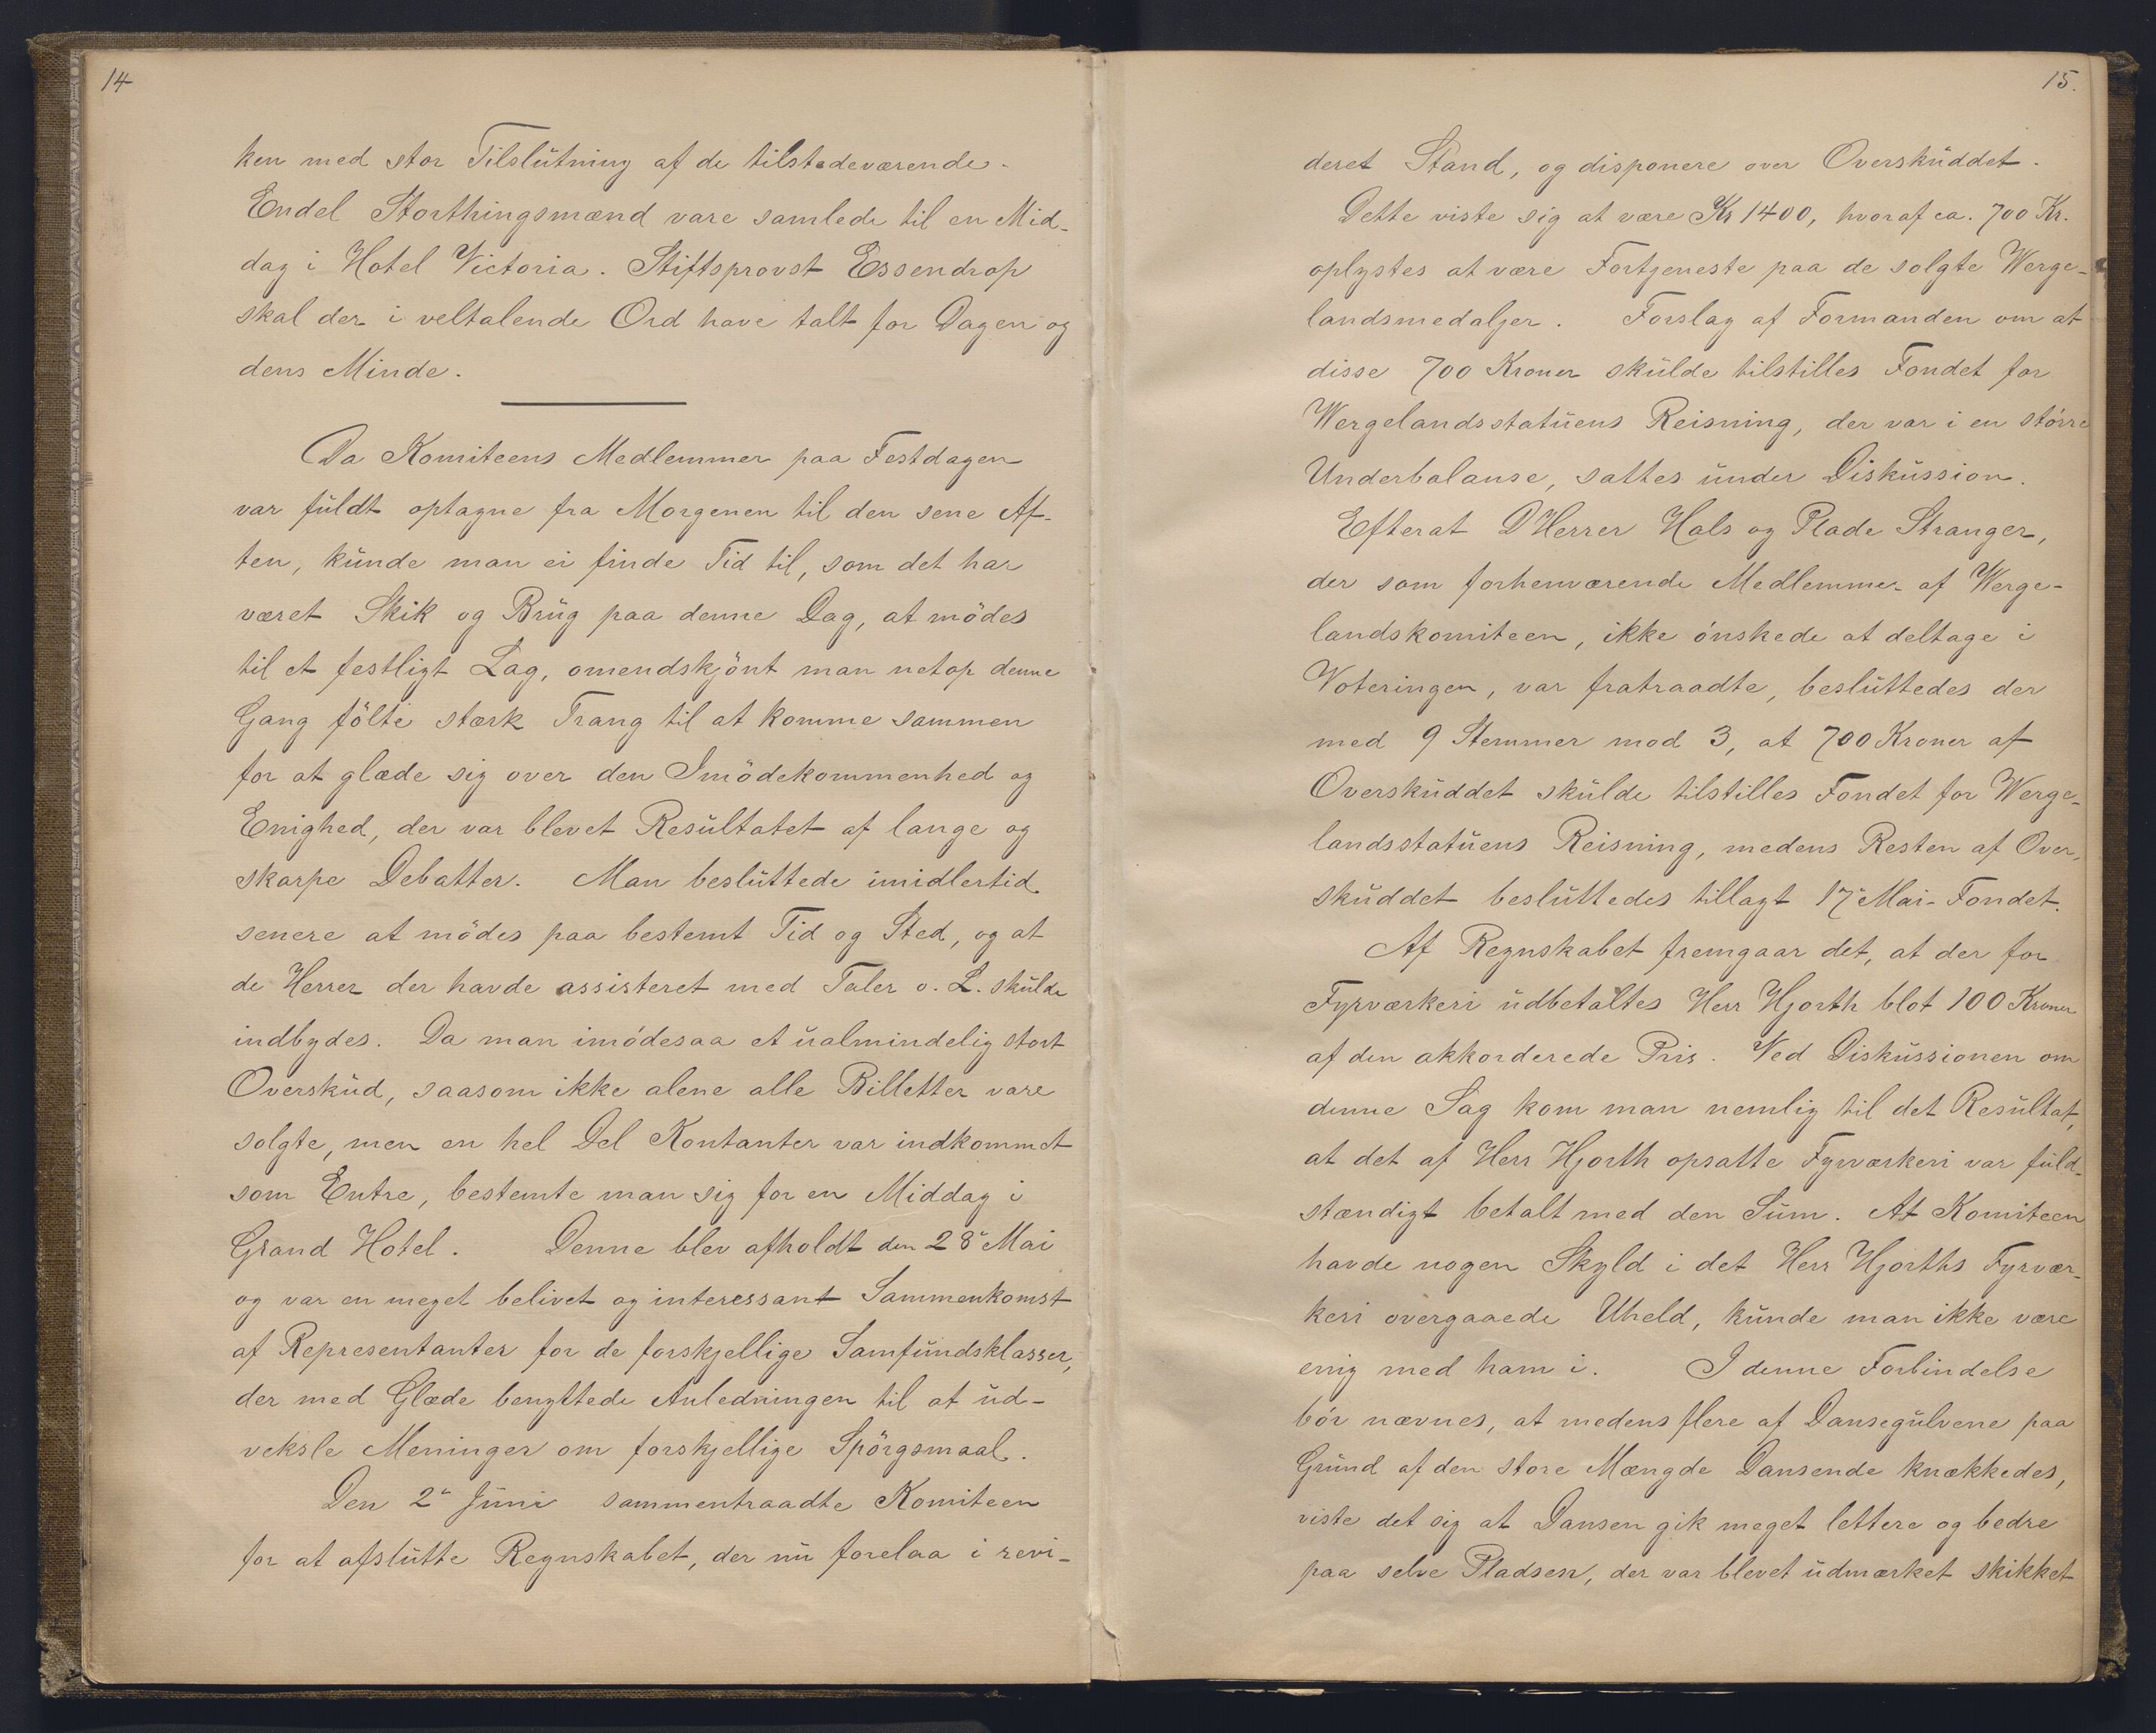 14
ken med stor Tilslutning af de tilstedeværende.
Endel Storthingsmænd vare samlede til en Mid-
dag i Hotel Victoria. Stiftsprovst Essendrop
skal der i veltalende Ord have talt for Dagen og
dens Minde.
Da Komiteens Medlemmer paa Festdagen
var fuldt optagne fra Morgenen til den sene Af-
ten, kunde man ei finde Tid til, som det har
været Skik og Brug paa denne Dag, at mödes
til et festligt Lag, omendskjönt man netop denne
Gang fölte stærk Trang til at komme sammen
for at glæde sig over den Imödekommenhed og
Enighed, der var blevet Resultatet af lange og
skarpe Debatter. Man besluttede imidlertid
senere at mödes paa bestemt Tid og Sted, og at
de Herrer der havde assisteret med Taler o. L. skulde
indbydes. Da man imödesaa et ualmindelig stort
Overskud, saasom ikke alene alle Billetter vare
solgte, men en hel Del Kontanter var indkommet
som Entre, bestemte man sig for en Middag i
Grand Hotel. Denne blev afholdt den 28de Mai
og var en meget belivet og interessant Sammenkomst
af Representanter for de forskjellige Samfundsklasser,
der med Glæde benyttede Anledningen til at ud-
veksle Meninger om forskjellige Spörgsmaal.
Den 2de Juni sammentraadte Komiteen
for at afslutte Regnskabet, der nu forelaa i revi-
15.
deret Stand, og disponere over Overskuddet.
Dette viste sig at være Kr 1400, hvoraf ca. 700 Kr.
oplystes at være Fortjeneste paa de solgte Werge-
landsmedaljer. Forslag af Formanden om at
disse 700 Kroner skulde tilstilles Fondet for
Wergelandsstatuens Reisning, der var i en större
Underbalanse, sattes under Diskussion.
Efterat D'Herrer Hals og Plade Stranger,
der som forhenværende Medlemmer af Werge-
landskomiteen, ikke önskede at deltage i
Voteringen, var fratraadte, besluttedes der
med 9 Stemmer mod 3, at 700 Kroner af
Overskuddet skulde tilstilles Fondet for Werge-
landsstatuens Reisning, medens Resten af Over-
skuddet besluttedes tillagt 17de Mai-Fondet.
Af Regnskabet fremgaar det, at der for
Fyrværkeri udbetaltes Herr Hjorth blot 100 Kroner
af den akkorderede Pris. Ved Diskussionen om
denne Sag kom man nemlig til det Resultat,
at det af Herr Hjorth opsatte Fyrværkeri var fuld-
stændigt betalt med den Sum. At Komiteen
havde nogen Skyld i det Herr Hjorths Fyrvær-
keri overgaaede Uheld, kunde man ikke være
enig med ham i. I denne Forbindelse
bör nævnes, at medens flere af Dansegulvene paa
Grund af den store Mængde Dansende knækkedes,
viste det sig at Dansen gik meget lettere og bedre
paa selve Pladsen, der var blevet udmærket skikket